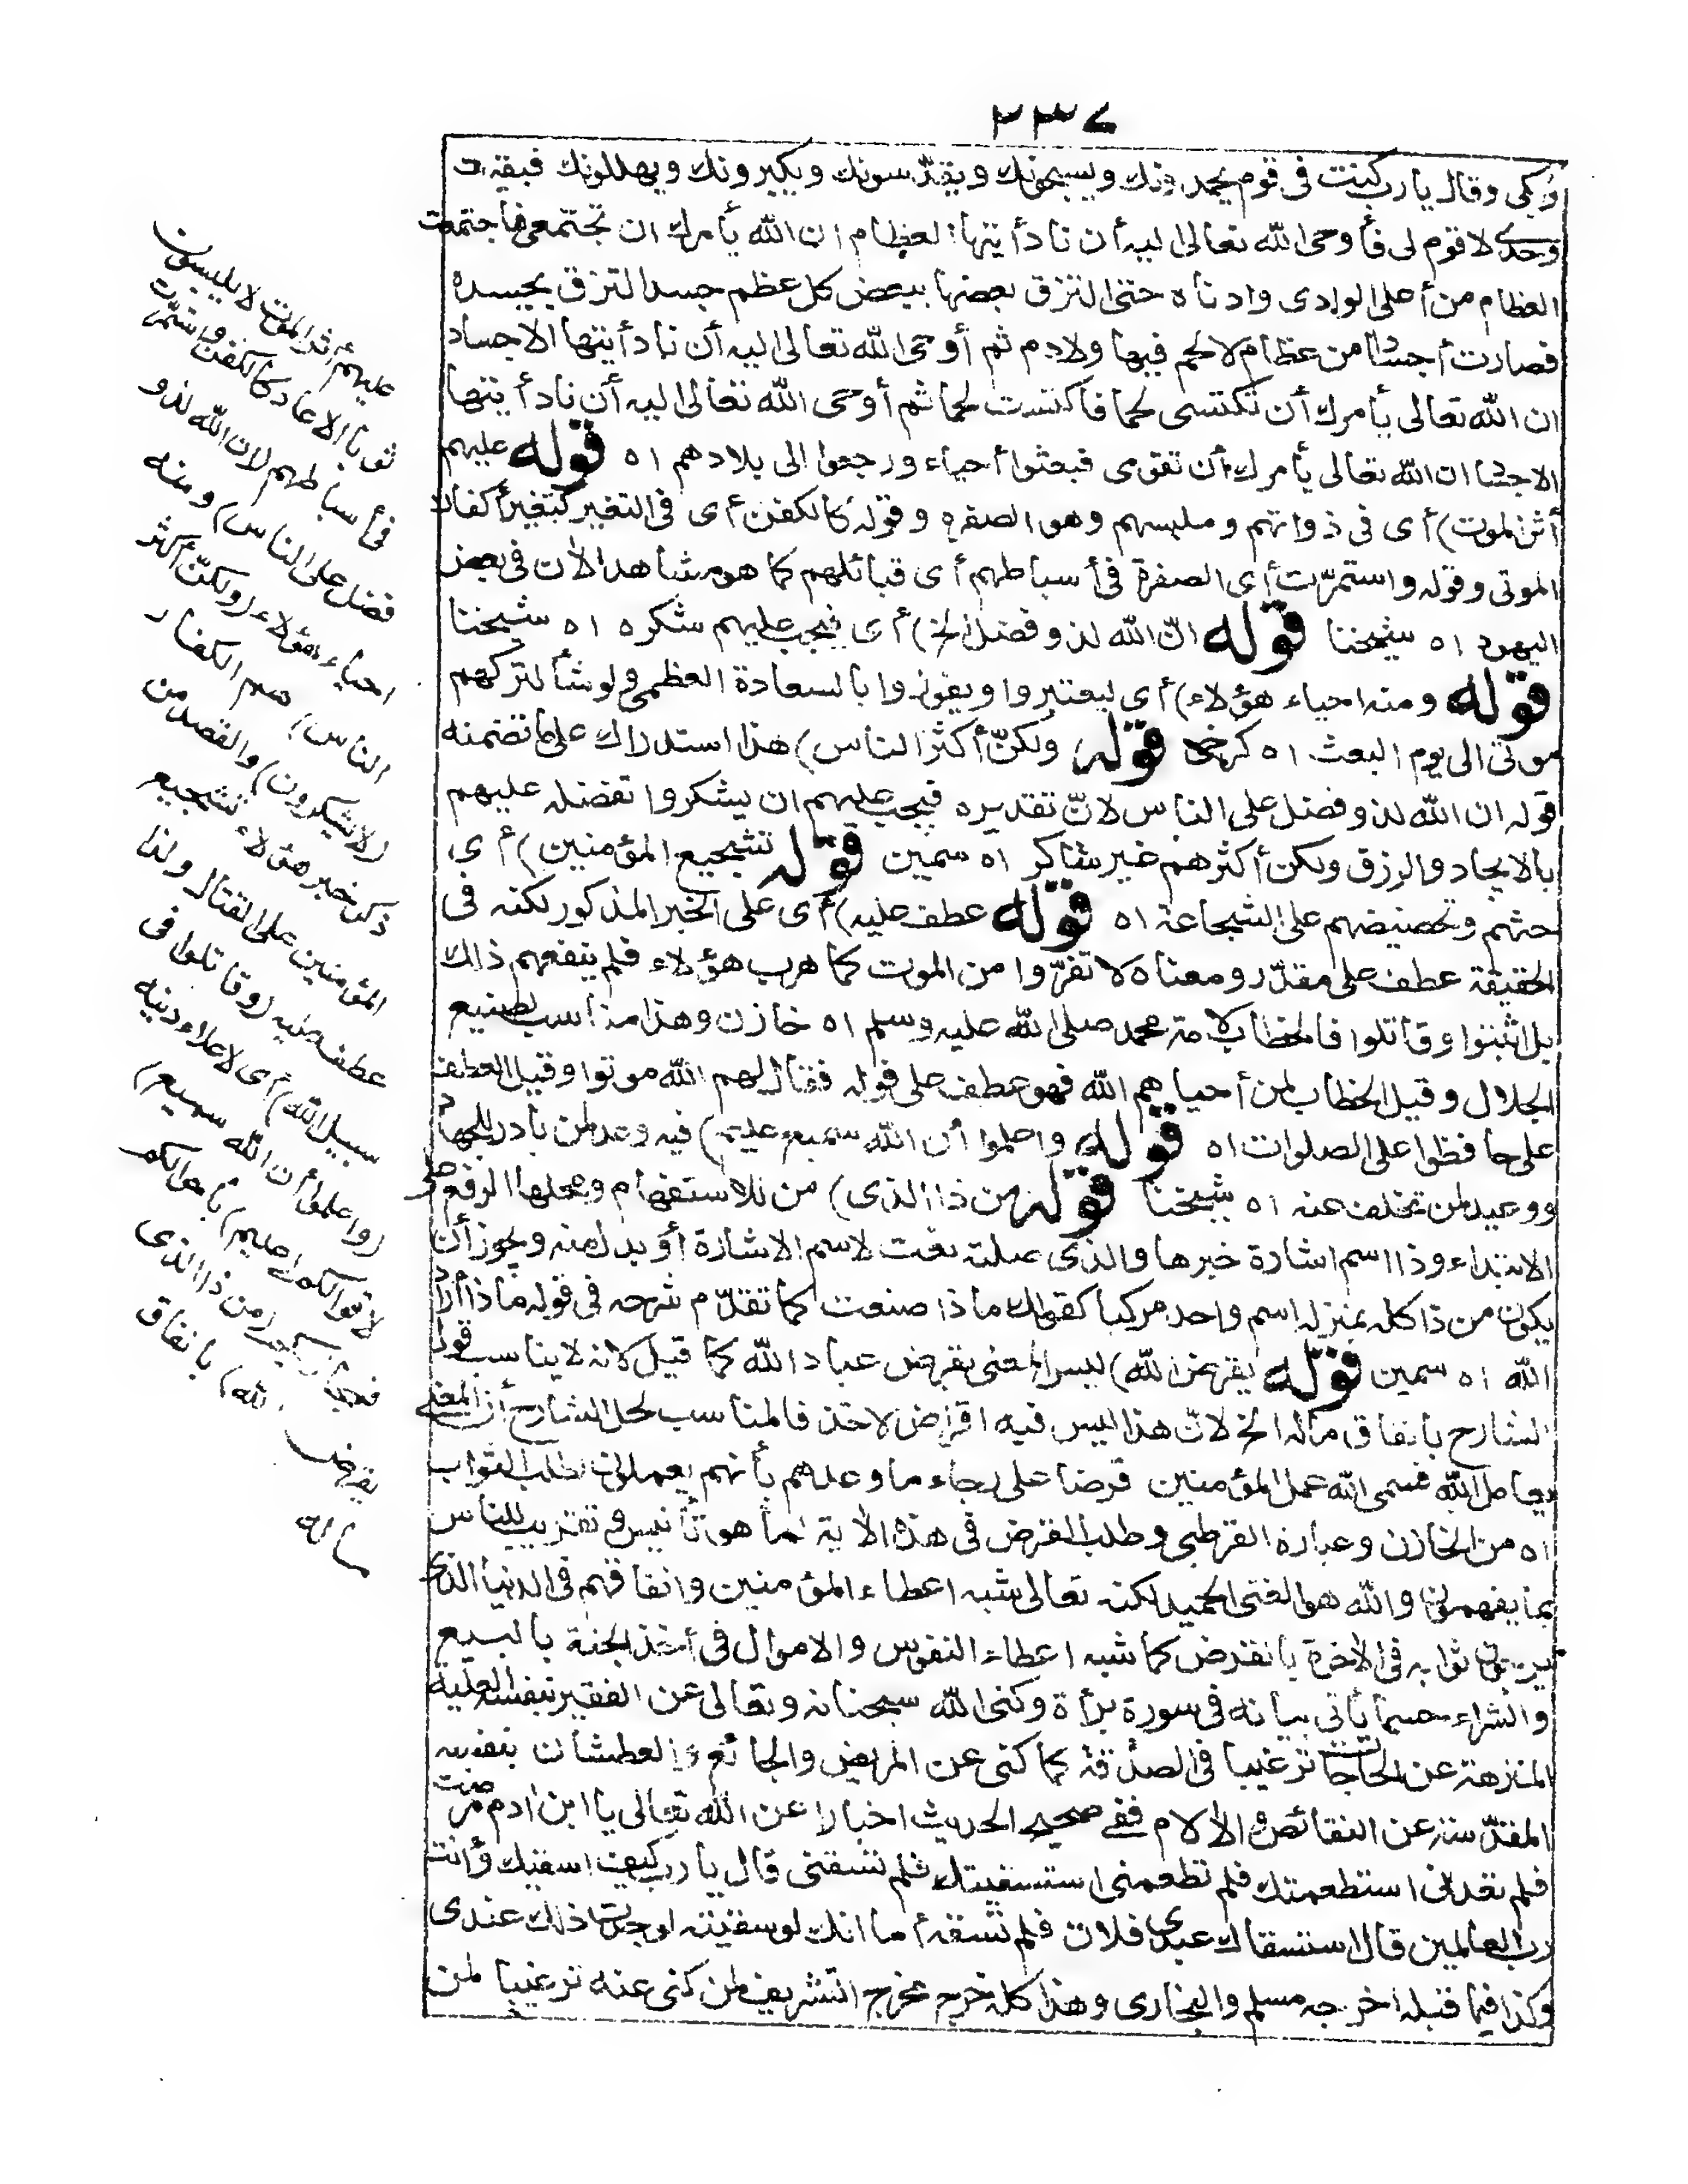 ٢٣٧
وبكى وقال يا رب كنت فى قوم يحمدونك ويسبحونك ويقدّسونك ويكبرونك ويهللونك فبقيت
وحدى لا قوم لى فأوحى الله تعالى اليه أن ناد أيتها العظام ان الله يأمرك ان تجتمعى فاجتمعت
العظام من أعلى الوادى وادناه حتى التزق بعضها ببعض كل عظم جسد التزق بجسده
فصارت أجسادا من عظام لا لحم فيها ولا دم ثم أوحى الله تعالى اليه أن ناد أيتها الاجساد
ان الله تعالى يأمرك أن تكتسى لحما فاكتست لحما ثم أوحى الله تعالى اليه أن ناد أيتها
الاجساد ان الله تعالى يأمرك أن تقومى فبعثوا أحياء ورجعوا الى بلادهم اه قوله عليهم
أثر الموت) أى فى ذواتهم وملبسهم وهو الصفرة وقوله كالكفن أى فى التغير كتغير أكفان
الموتى وقوله واستمرّت أى الصفرة فى أسباطهم أى قبائلهم كما هو مشاهد الآن فى بعض
اليهود اه شيخنا قوله انّ الله لذو فضل الخ) أى فيجب عليهم شكره اه شيخنا
قوله ومنه احياء هؤلاء) أى ليعتبروا ويفوزوا بالسعادة العظمى ولو شأ لتركهم
موتى الى يوم البعث اه كرخى قوله ولكنّ أكثر الناس) هذا استدراك على ما تضمنه
قوله ان الله لذو فضل على الناس لانّ تقديره فيجب عليهم ان يشكروا تفضله عليهم
بالايجاد والرزق ولكن أكثرهم غير شاكر اه سمين قوله تشجيع المؤمنين) أى
حثهم وتحضيضهم على الشجاعة اه قوله عطف عليه) أى على الخبر المذكور لكنه فى
الحقيقة عطف على مقدّر ومعناه لا تفرّوا من الموت كما هرب هؤلاء فلم ينفعهم ذلك
بل اثبتوا وقاتلوا فالخطاب لامة محمد صلى الله عليه وسلم اه خازن وهذا مناسب لصنيع
الجلال وقيل الخطاب لمن أحياهم الله فهو عطف على قوله فقال لهم الله موتوا وقيل العطف
على حافظوا على الصلوات اه قوله واعلموا أن الله سميع عليم) فيه وعد لمن بادر للجهاد
ووعيد لمن تخلف عنه اه شيخنا قوله من ذا الذى) من للاستفهام ومحلها الرفع على
الابتداء وذا اسم اشارة خبرها والذى صلته نعت لاسم الاشارة أو بدل منه ويجوز أن
يكون من ذا كله بمنزلة اسم واحد مركبا كقولك ماذا صنعت كما تقدّم شرحه فى قوله ماذا أراد
الله اه سمين قوله يقرض الله) ليس المعنى يقرض عباد الله كما قيل لانه لا يناسب قول
الشارح بانفاق ماله الخ لانّ هذا ليس فيه اقراض لاحد فالمناسب لحل الشارح أن المعنى
يعامل الله فسمى الله عمل المؤمنين قرضا على رجاء ما وعدهم بأنهم يعملون لطلب الثواب
اه من الخازن وعبارة القرطبى وطلب القرض فى هذه الآية انما هو تأنيس وتقريب للناس
بما يفهمونه والله هو الغنى الحميد لكنه تعالى شبه اعطاء المؤمنين وانفاقهم فى الدنيا الذى
يرجون ثوابه فى الآخرة بالقرض كما شبه اعطاء النفوس والاموال فى أخذ الجنة بالبيع
والشراء حسبما يأتى بيانه فى سورة براءة وكنى الله سبحانه وتعالى عن الفقير بنفسه العلية
المنزهة عن الحاجات ترغيبا فى الصدقة كما كنى عن المريض والجائع والعطشان بنفسه
المقدّسة عن النقائص والآلام ففى صحيح الحديث اخبارا عن الله تعالى يا ابن ادم مرضت
فلم تعدنى استطعمتك فلم تطعمنى استسقيتك فلم تسقنى قال يا رب كيف اسقيك وأنت
رب العالمين قال استسقاك عبدى فلان فلم تسقه أما انك لو سقيته لوجدت ذلك عندى
وكذا فيما قبله اخرجه مسلم والبخارى وهذا كله خرج مخرج التشريف لمن كنى عنه ترغيبا لمن
عليهم أثر الموت لا يلبسون
ثوبا الا عاد كالكفن واستمرّت
فى أسباطهم لان الله لذو
فضل على الناس) ومنه
احياء هؤلاء (ولكنّ أكثر
الناس) هم الكفار
(لا يشكرون) والقصد من
ذكر خبر هؤلاء تشجيع
المؤمنين على القتال ولذا
عطف عليه (وقاتلوا فى
سبيل الله) أى لاعلاء دينه
(واعلموا أن الله سميع)
لاقوالكم (عليم) بأحوالكم
فيجازيكم (من ذا الذى
يقرض الله) بانفاق
ماله